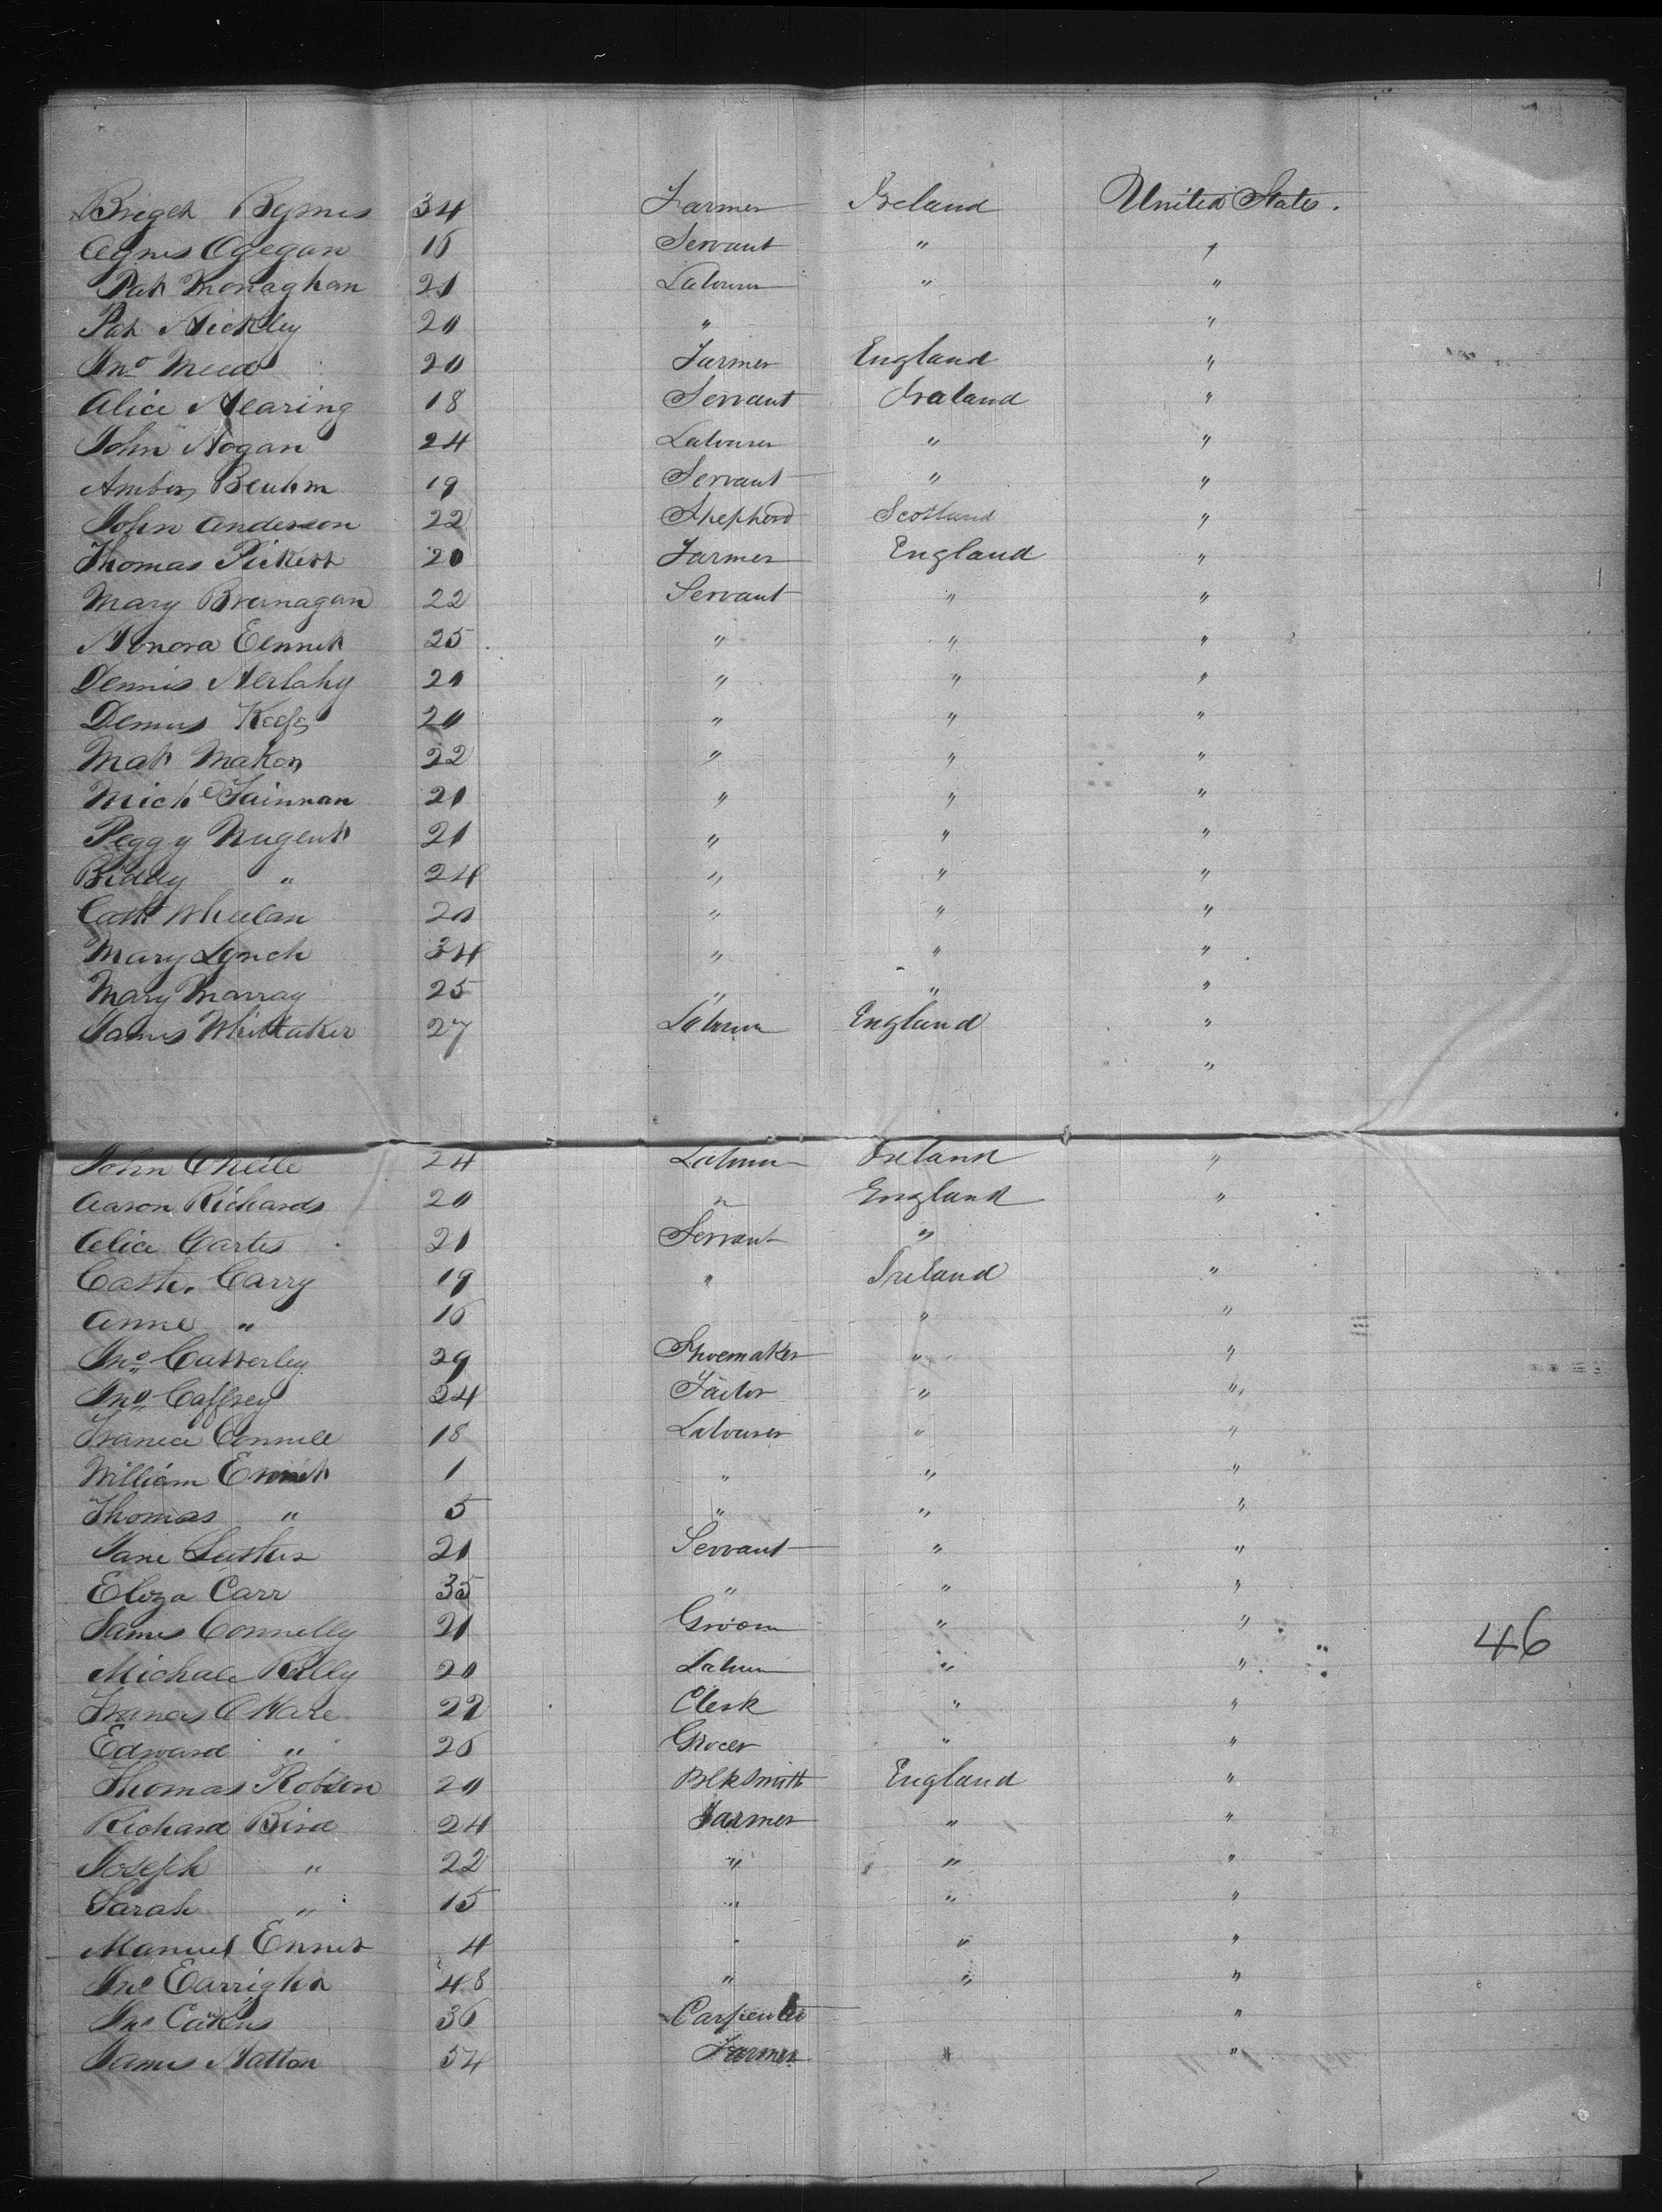 Briget Byrnes 34 Farmer Ireland United States.
Agnes Ogegan 16 Servant " "
Pat Monaghan 21 Labourer " "
Pat Hickley 20 " "
Jno Mead 20 Farmer England "
Alice Nearing 18 Servant Ireland "
John Hogan 24 Labourer " "
19 Servant " "
John Anderson 22 Shepherd Scotland "
Thomas Pickett 20 Farmer England "
Mary Branagan 22 Servant " "
Honora Ennet 25 " " "
Dennis Herlahy 21 " " "
Dennis Keefe 20 " " "
Mat Makon 22 " " "
Michl Fainnan 21 " " "
Peggy Nugent 21 " " "
Biddy " 24 " " "
Cath Whelan 20 " " "
Mary Lynch 34 " " "
Mary Marray 25 " " "
James Whittaker 27 Labourer England "
"
John ONeile 24 Labourer Ireland "
Aaron Richards 20 " England "
Alice Cartes 21 Servant "
Cath. Carry 19 " Ireland "
Anne " 16 " "
Jno Catterley 29 Shoemaker " "
Jno Caffrey 24 Factor " "
Francis Connell 18 Labourer " "
William Ennet 1 " " "
Thomas " 5 " " "
Jane 21 Servant " "
Eliza Carr 35 " " "
James Connelly 21 Groom " "
46
Michale Kelly 20 Labourer " "
Francis OHare 22 Clerk " "
Edward " 26 Grocer " "
Thomas Robson 20 Blksmith England "
Richard Bird 24 Farmer " "
Joseph " 22 " " "
Sarah " 15 " " "
Manuel Ennet 4 " " "
Jno Earright 48 " " "
Jno Eakins 36 Carpenter "
James Hatton 54 Farmer " "